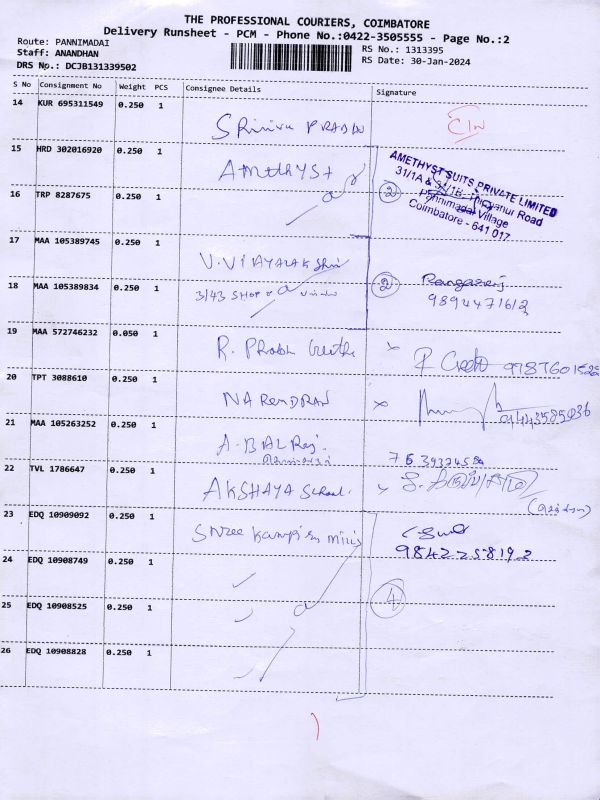 THE PROFESSIONAL COURIERS, COIMBATORE
Delivery Runsheet - PCM - Phone No.:0422-3505555 - Page No.:2
Route: PANNIMADAI
RS No.: 1313395
Staff: ANANDHAN
RS Date: 30-Jan-2024
DRS No.: DCJB131339502
S No Consignment No Weight PCS Consignee Details Signature
14 KUR 695311549 0.250 1
15 HRD 302016920 0.250 1 Amethyst
AMETHYST SUITS PRIVATE LIMITED
Pannimadai Village
Coimbatore - 641 017
16 TRP 8287675 0.250 1 2
17 MAA 105389745 0.250 1
18 MAA 105389834 0.250 1 3/43 SHOP 2
9894471612
19 MAA 572746232 0.050 1 R. Prabhu
20 TPT 3088610 0.250 1 NARENDRAN
21 MAA 105263252 0.250 1 A. BALRaj.
22 TVL 1786647 0.250 1 AKSHAYA School.
23 EDQ 10909092 0.250 1 Shree
9842258192
24 EDQ 10908749 0.250 1
25 EDQ 10908525 0.250 1 4
26 EDQ 10908828 0.250 1